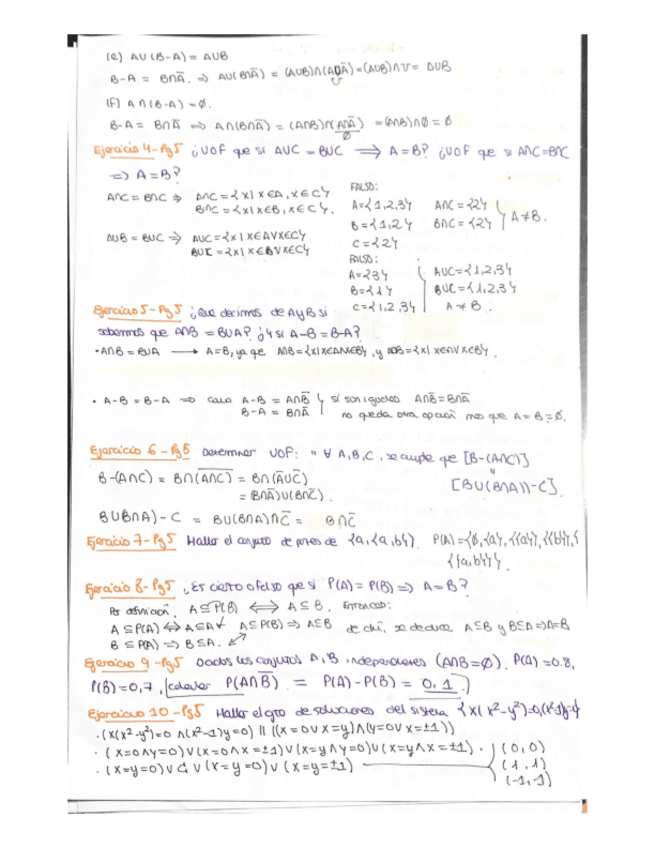 (e) AU(B-A) = AUB
B-A = B∩Ā. ⇒ AU(B∩Ā) = (AUB)∩(AUĀ) = (AUB)∩U = AUB
(f) A∩(B-A) = ∅.
B-A = B∩Ā ⇒ A∩(B∩Ā) = (A∩B)∩(A∩Ā) = (A∩B)∩∅ = ∅
∅
Ejercicio 4-Pg5 ¿VOF que si AUC = BUC ⟹ A=B? ¿VOF que si A∩C=B∩C
⇒ A=B?
A∩C = B∩C ⇒ A∩C = {x| x∈A, x∈C}
B∩C = {x| x∈B, x∈C}.
FALSO:
A={1,2,3} A∩C = {2}
B={1,2} B∩C = {2} A≠B.
C={2}
AUB = BUC ⇒ AUC={x| x∈A∨x∈C}
BUC = {x| x∈B∨x∈C}
FALSO:
A={3} AUC={1,2,3}
B={1} BUC={1,2,3}
C={1,2,3} A≠B.
Ejercicio 5-Pg5 ¿Que decimos de A y B si
sabemos que A∩B = BUA? ¿Y si A-B = B-A?
• A∩B = BUA ⟶ A=B, ya que A∩B={x|x∈A∧x∈B}, y AUB={x| x∈A∨x∈B}.
• A-B = B-A ⇒ como A-B = A∩B̄ si son iguales A∩B̄ = B∩Ā
B-A = B∩Ā no queda otra opción mas que A=B=∅.
Ejercicio 6-Pg5 Determinar VOF: "∀ A,B,C, se cumple que [B-(A∩C)]
"
B-(A∩C) = B∩(A∩C)‾ = B∩(ĀUC̄) [BU(B∩A))-C].
= B∩Ā)U(B∩C̄).
BUB∩A)-C = BU(B∩A)∩C̄ = B∩C̄
Ejercicio 7-Pg5 Hallar el conjunto de partes de {a,{a,b}}. P(A)={∅,{a},{{a}},{{b}},{
{{a,b}}}.
Ejercicio 8-Pg5 ¿Es cierto o falso que si P(A)=P(B) ⇒ A=B?
Por definición, A⊆P(B) ⟺ A⊆B. Entonces:
A⊆P(A) ⟺ A⊆A A⊆P(B) ⇒ A⊆B de ahí, se deduce A⊆B y B⊆A ⇒ A=B
B⊆P(A) ⇒ B⊆A.
Ejercicio 9-Pg5 Dados los conjuntos A,B independientes (A∩B=∅). P(A)=0.8,
P(B)=0,7, calcular P(A∩B̄) = P(A)-P(B) = 0,1.
Ejercicio 10-Pg5 Hallar el cjto de soluciones del sistema {x(x²-y²)=0,(x²-1)y=0}
• (x(x²-y²)=0 ∧(x²-1)y=0) || ((x=0∨x=y)∧(y=0∨x=±1))
• (x=0∧y=0)∨(x=0∧x=±1)∨(x=y∧y=0)∨(x=y∧x=±1). (0,0)
• (x=y=0)∨ ∨(x=y=0)∨(x=y=±1) (1,1)
(-1,-1)